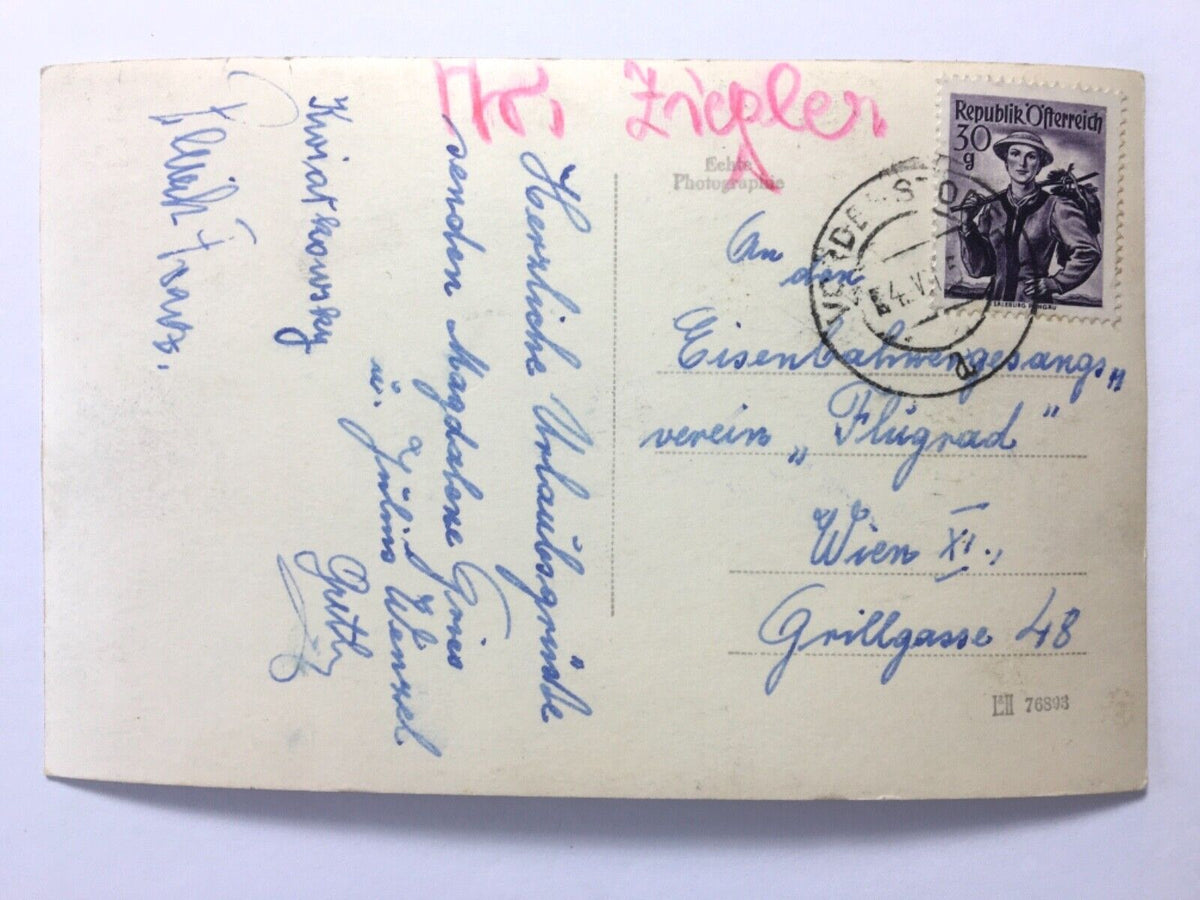 Ziegler
Herzliche Urlaubsgrüße
senden Magdalena Gries
u. Julius Wenzel
Gretl
Kwiatkowsky
Franz.
Echte
Photographie
Republik Österreich
30
g
SALZBURG PONGAU
An
den
Eisenbahnergesangs„
verein „Flugrad"
Wien XI.,
Grillgasse 48
76893